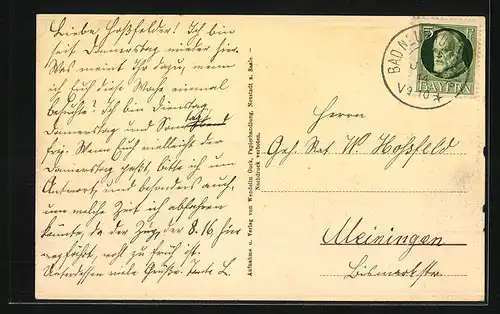 Liebe Hoßfelder! Ich bin
seit Donnerstag wieder hier.
Was meint Ihr dazu, wenn
ich Euch diese Woche einmal
besuchte? Ich bin Dienstag,
Donnerstag und Samstag
frei. Wenn Euch vielleicht der
Donnerstag paßt, bitte ich um
Antwort, und besonders auch,
um welche Zeit ich abfahren
könnte, da der Zug, der 8.16 hier
wegfährt, wohl zu früh ist.
Unterdessen viele Grüße. Tante L.
Aufnahme u. Verlag von Wendelin Guck, Papierhandlung, Neustadt a. Saale. –
Nachdruck verboten.
BAD NEU
V9-10
BAYERN
Herrn
Geh. Rat W. Hoßfeld
Meiningen
Bismarckstr.